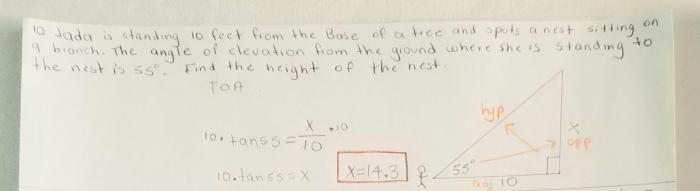 10 Jada is standing 10 feet from the Base of a tree and spots a nest sitting on
a branch. The angle of elevation from the ground where she is standing to
the nest is 55°. Find the height of the nest.
TOA
10 • tan55 = X/10 • 10
10. tan55 = X
X=14.3
hyp
X
opp
55°
adj 10